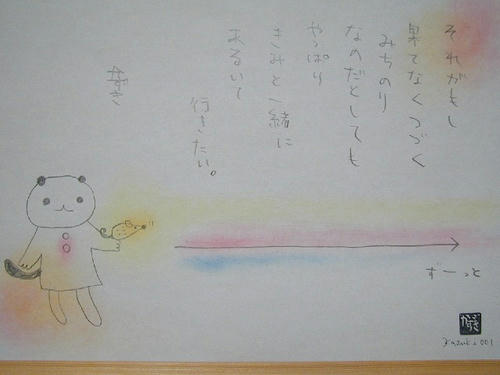 それがもし
果てなくつづく
みちのり
なのだとしても
やっぱり
きみと一緒に
あるいて
行きたい。
かずき
ずーっと
かずき
Kazuki 001